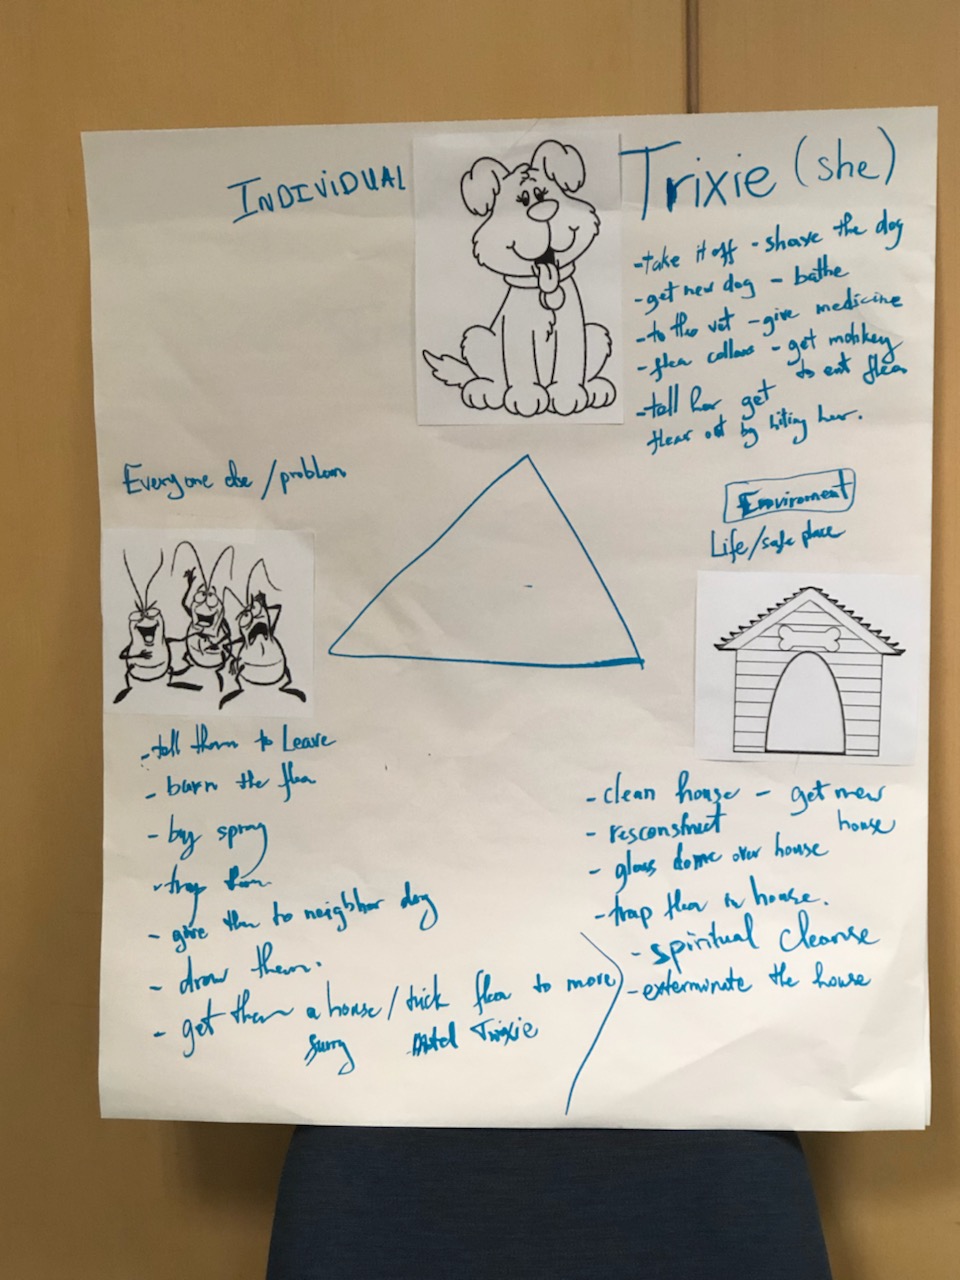 INDIVIDUAL
Trixie (she)
- take it off - shave the dog
- get new dog - bathe
- to the vet - give medicine
- flea collars - get monkey
to eat fleas
- tell her get
them out by biting her.
Everyone else / problem
Enviroment
Life/safe place
- tell them to Leave
- burn the flea
- by spray
- trap them
- give them to neighbor dog
- drow them.
- get them a house / trick flea to more
furry
Motel Trixie
- clean house - get new
house
- resconstruct
- glass dome over house
- trap flea in house.
- spiritual cleanse
- exterminate the house